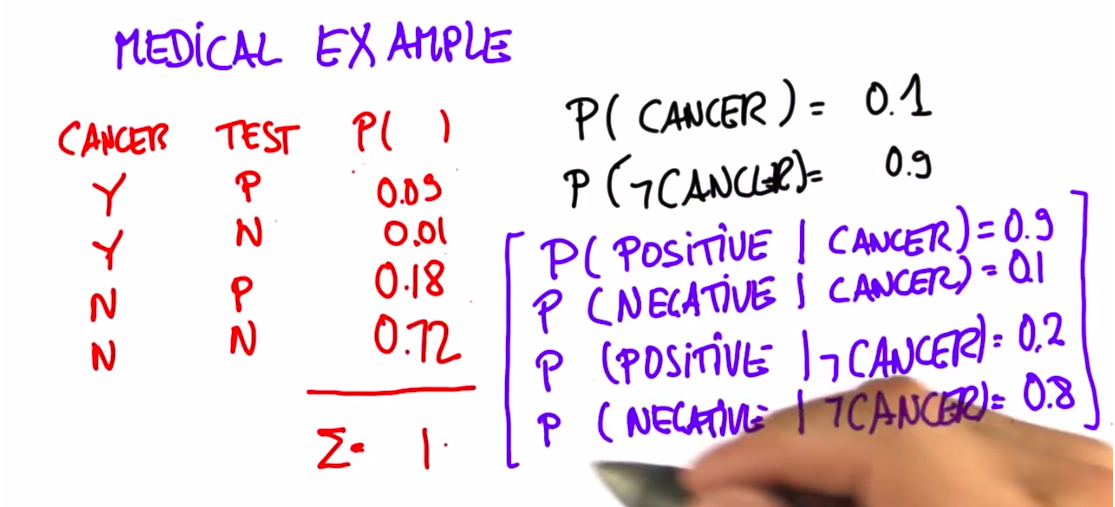 MEDICAL EXAMPLE
CANCER TEST P( )
Y P 0.09
Y N 0.01
N P 0.18
N N 0.72
Σ= 1
P( CANCER ) = 0.1
P (¬CANCER)= 0.9
P( POSITIVE | CANCER) = 0.9
P (NEGATIVE | CANCER) = 0.1
P (POSITIVE |¬CANCER)= 0.2
P (NEGATIVE | ¬CANCER)= 0.8